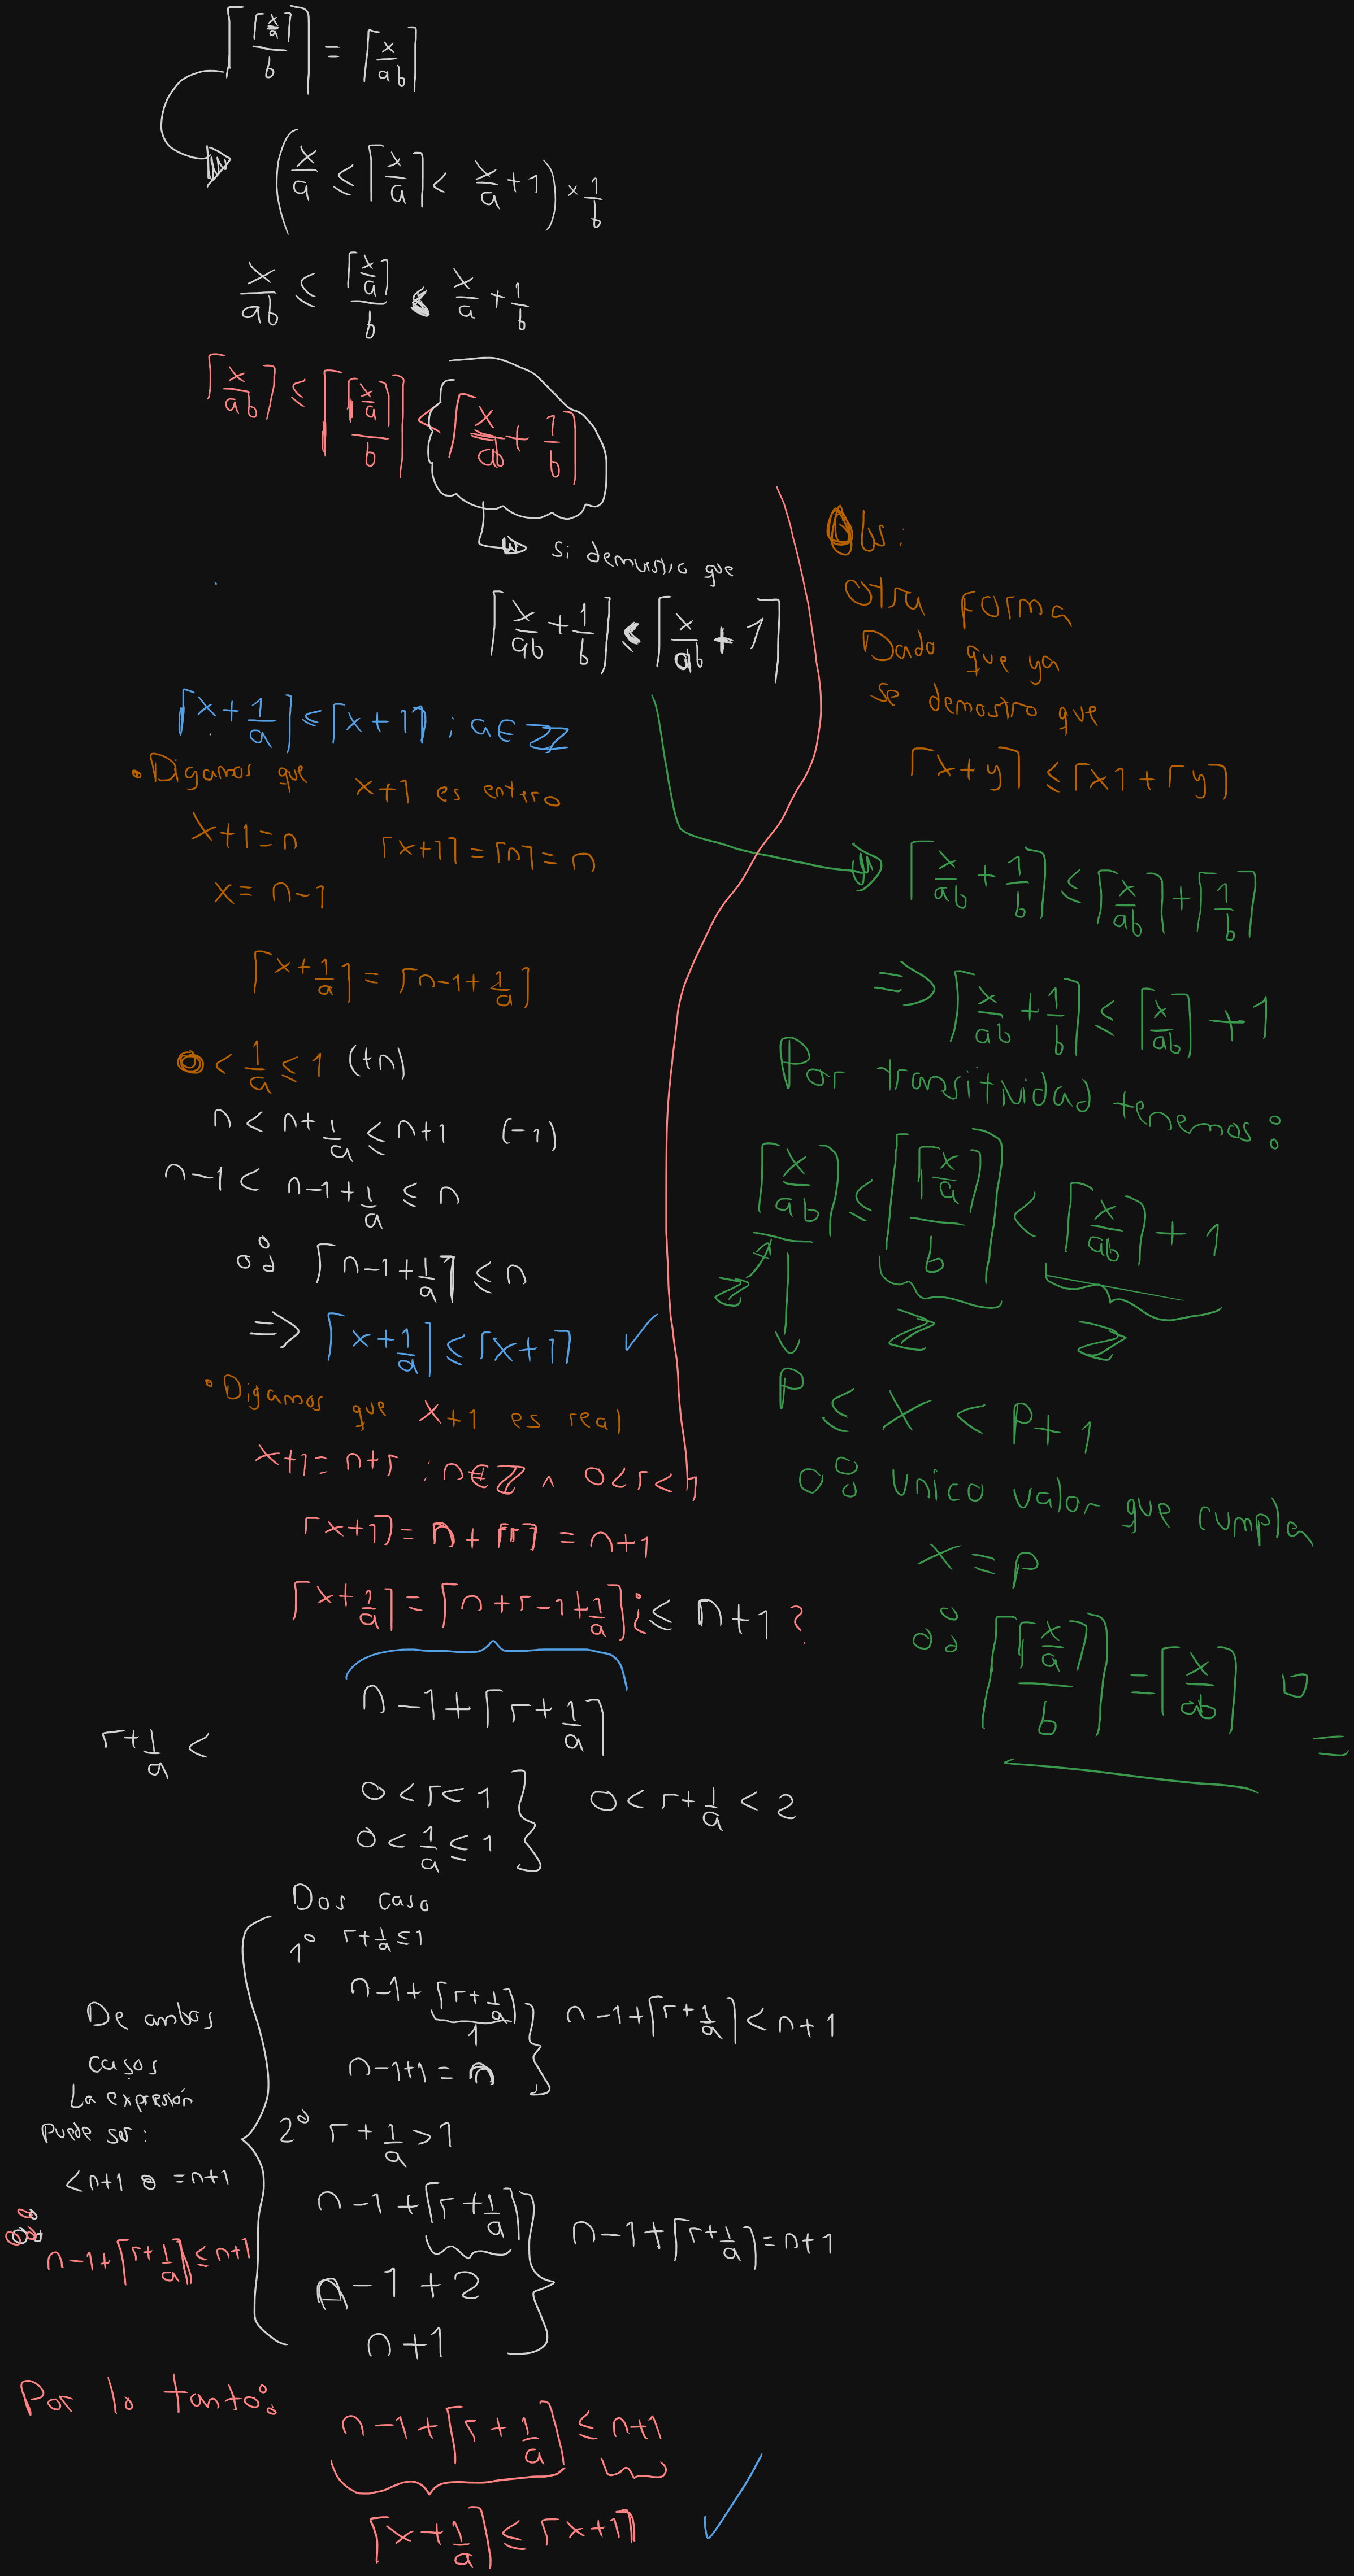 ⌈⌈x/a⌉/b⌉ = ⌈x/ab⌉
(x/a ≤ ⌈x/a⌉ < x/a + 1) × 1/b
x/ab ≤ ⌈x/a⌉/b < x/a + 1/b
⌈x/ab⌉ ≤ ⌈⌈x/a⌉/b⌉ < ⌈x/ab + 1/b⌉
si demuestro que
⌈x/ab + 1/b⌉ ≤ ⌈x/ab + 1⌉
⌈x + 1/a⌉ ≤ ⌈x+1⌉ ; a ∈ ℤ
• Digamos que x+1 es entero
x+1 = n ⌈x+1⌉ = ⌈n⌉ = n
x = n-1
⌈x + 1/a⌉ = ⌈n-1 + 1/a⌉
0 < 1/a ≤ 1 (+n)
n < n + 1/a ≤ n+1 (-1)
n-1 < n-1 + 1/a ≤ n
∴ ⌈n-1 + 1/a⌉ ≤ n
⇒ ⌈x + 1/a⌉ ≤ ⌈x+1⌉ ✓
• Digamos que x+1 es real
x+1 = n+r ; n ∈ ℤ ∧ 0<r<1
⌈x+1⌉ = n + ⌈r⌉ = n+1
⌈x + 1/a⌉ = ⌈n+r-1+1/a⌉ ¿≤ n+1?
n-1 + ⌈r + 1/a⌉
r + 1/a <
0 < r < 1 } 0 < r + 1/a < 2
0 < 1/a ≤ 1
Dos caso
1° r + 1/a ≤ 1
n-1 + ⌈r + 1/a⌉ } n-1 + ⌈r + 1/a⌉ < n+1
1
n-1+1 = n
2° r + 1/a > 1
n-1 + ⌈r + 1/a⌉ } n-1 + ⌈r + 1/a⌉ = n+1
n-1+2
n+1
De ambos
casos
La expresión
puede ser:
<n+1 o =n+1
∴ n-1 + ⌈r + 1/a⌉ ≤ n+1
Por lo tanto:
n-1 + ⌈r + 1/a⌉ ≤ n+1
⌈x + 1/a⌉ ≤ ⌈x+1⌉ ✓
Obs:
otra forma
Dado que ya
se demostro que
⌈x+y⌉ ≤ ⌈x⌉ + ⌈y⌉
⌈x/ab + 1/b⌉ ≤ ⌈x/ab⌉ + ⌈1/b⌉
⇒ ⌈x/ab + 1/b⌉ ≤ ⌈x/ab⌉ + 1
Por transitividad tenemos:
⌈x/ab⌉ ≤ ⌈⌈x/a⌉/b⌉ < ⌈x/ab⌉ + 1
ℤ ℤ ℤ
P ≤ X < P+1
∴ unico valor que cumpla
x = p
∴ ⌈⌈x/a⌉/b⌉ = ⌈x/ab⌉ □